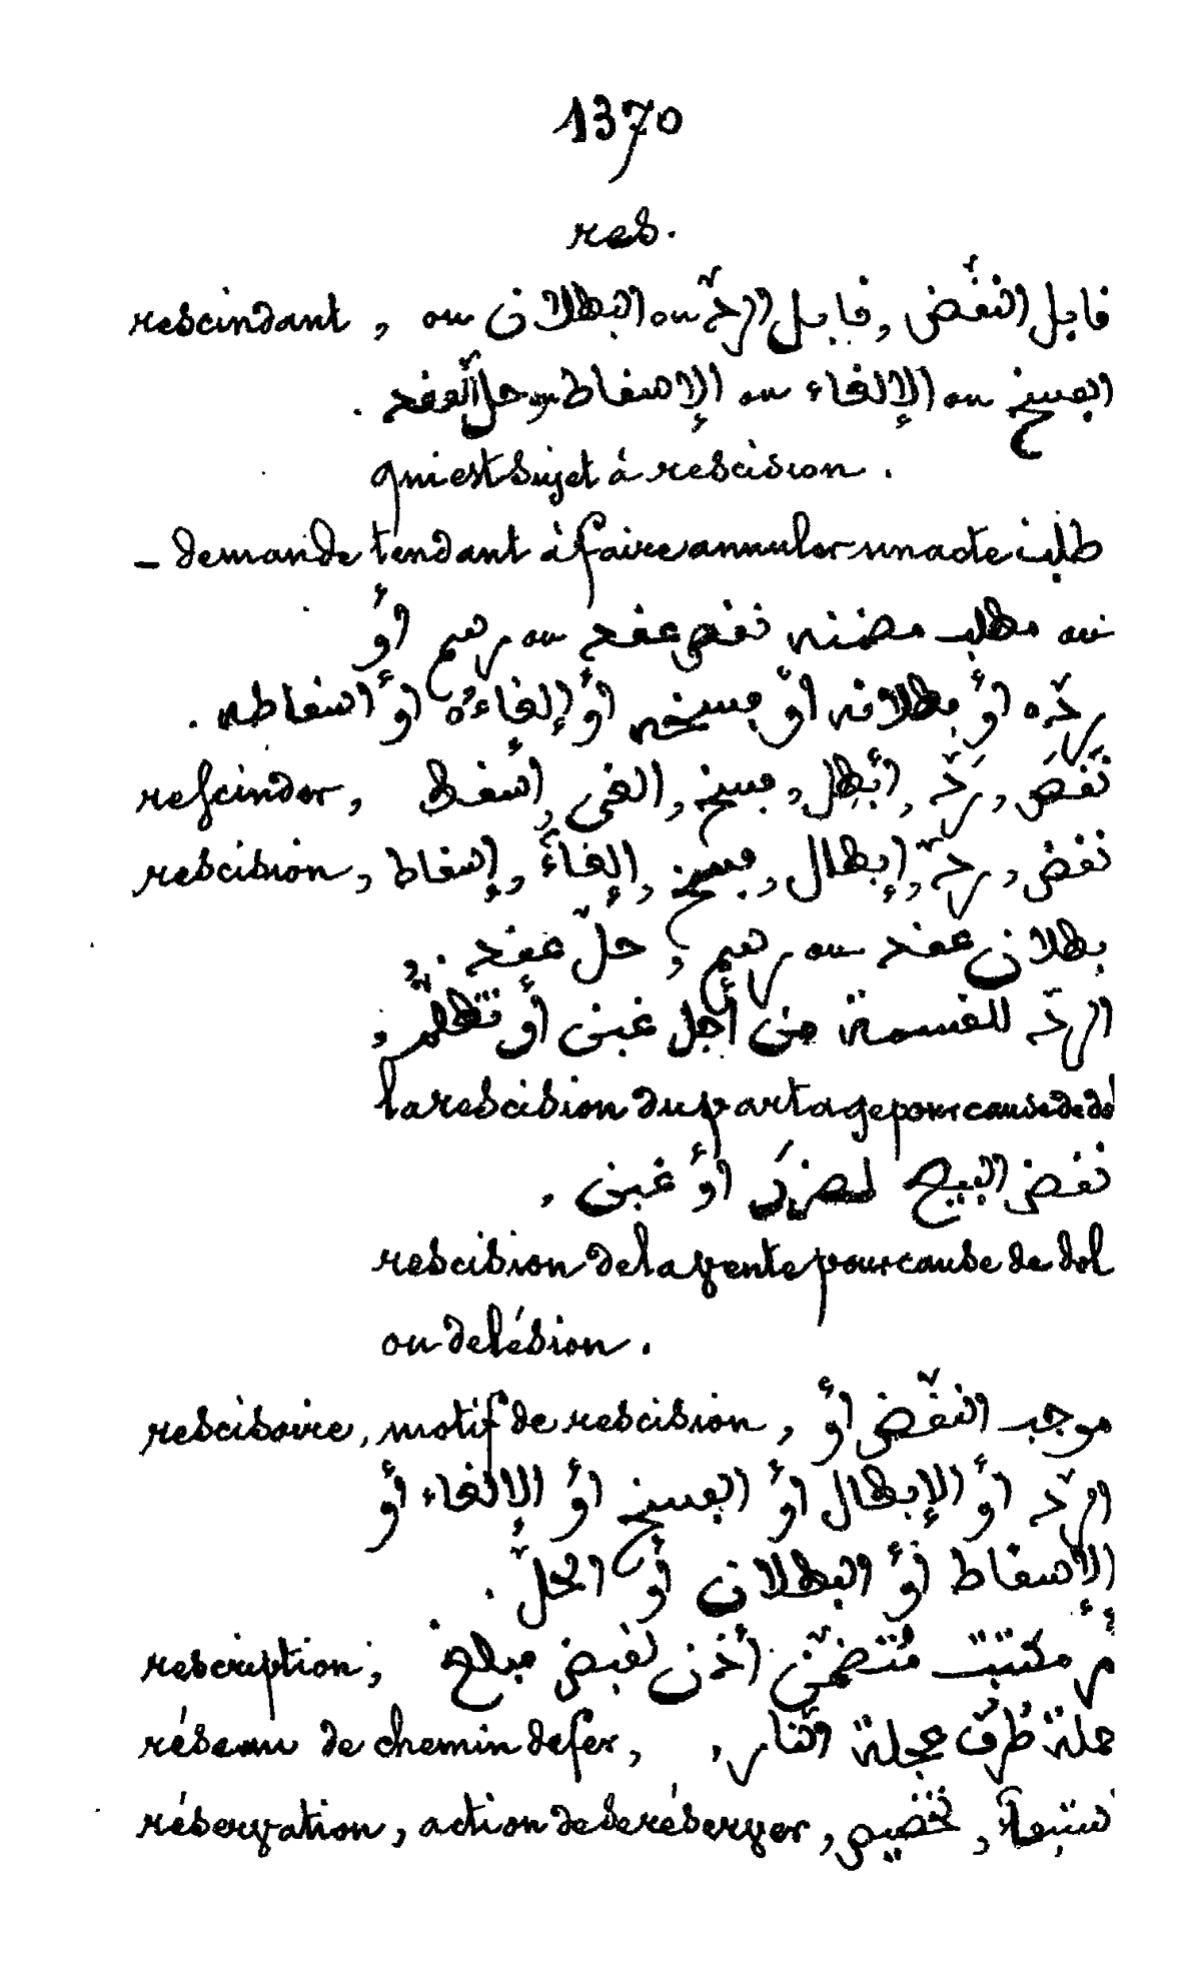 1370
res.
rescindant, قابل النقّض, قابل الردّ ou البطلان ou
الفسخ ou الإلغاء ou الإسقاط ou حلّ العقد.
qui est sujet à rescision.
- demande tendant à faire annuler un acte طلب
ou مطلب مضمنه نقض عقد ou رسم أو
ردّه أو بطلانه أو فسخه أو إلغاءه أو اسقاطه.
rescinder, نَقَضَ, رَدّ, أبْطل, فسخ, الغى, أسْقط
rescision, نقض, ردّ, إبطال, فسخ, إلغاءً, إسقاط
بطلان عقد ou رسم, حلّ عقد.,
الردّ للقسمة من أجل غبن أو تظلّم,
la rescision du partage pour cause de dol
نقض البيع لضرر أو غبن,
rescision de la vente pour cause de dol
ou de lésion.
rescisoire, motif de rescision, موجب النقّض أو
الردّ أو الإبطال أو الفسخ أو الإلغاء أو
الإسقاط أو البطلان أو الحلّ.
rescription; مكتبت مُتضمّن أذن لقبض مبلغ
réseau de chemin de fer, جملة طُرُق عجلة النار,
réservation, action de se réserver, تخصيص,